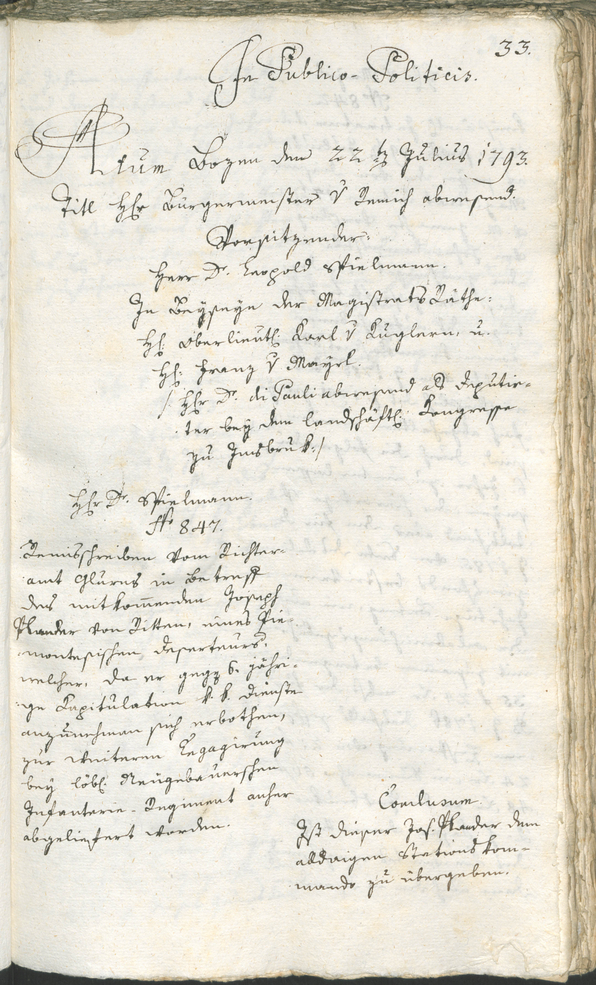 33.
In Publico-Politicis.
Actum Bozen den 22 t Julius 1793.
Titl Hhr Bürgermeister v Remich abwesend.
Vorsitzender.
Herr Dr. Leopold Spielmann.
In Beyseye der Magistrats Räthe:
Hh: Oberlieutl: Karl v Kuglern, u.
Hh: Franz v Mayrl.
/: Hhr Dr. di Pauli abwesend als Deputir-
ter bey dem landschäftl: Kongresse
zu Insbruk :/
Hhr Dr. Spielmann.
No 847.
Remisschreiben vom Richter-
amt Glurns in Betreff
des mitkommenden Joseph
Plander von Ritten, eines Pie-
montesischen Deserteurs,
welcher, da er gegg 6 jähri-
ge Kapitulation k. k. Dienste
anzunehmen sich erbothen,
zur weiteren Engagirung
bey löbl: Neugebauerschen
Infanterie-Regiment anher
abgeliefert worden.
Conclusum.
Ist dieser Jos. Plander dem
alldaigen Stationskom-
mando zu übergeben.